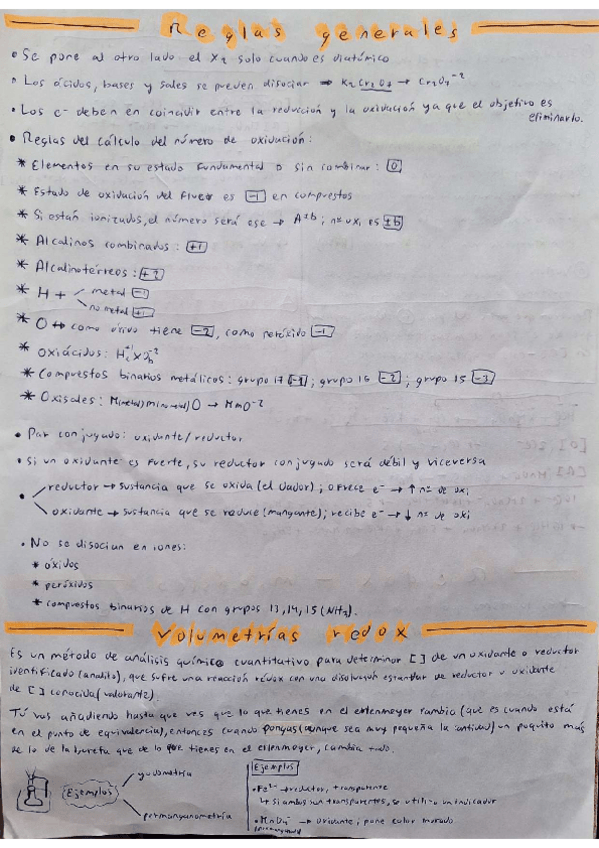 Reglas generales
• Se pone al otro lado el X₂ solo cuando es diatómico
• Los ácidos, bases y sales se pueden disociar → K₂Cr₂O₇ → Cr₂O₇⁻²
• Los e⁻ deben en coincidir entre la reducción y la oxidación ya que el objetivo es
eliminarlo.
• Reglas del cálculo del número de oxidación:
* Elementos en su estado fundamental o sin combinar: 0
* Estado de oxidación del fluor es -1 en compuestos
* Si están ionizados, el número será ese → A±b; nº oxi es ±b
* Alcalinos combinados: +1
* Alcalinotérreos: +2
* H + metal -1
no metal +1
* O ↔ como óxido tiene -2, como peróxido -1
* Oxiácidos:
* Compuestos binarios metálicos: grupo 17 -1; grupo 16 -2; grupo 15 -3
* Oxisales: M(metal)m(no metal)O → MmO⁻²
• Par conjugado: oxidante/reductor
• Si un oxidante es fuerte, su reductor conjugado será débil y viceversa
• reductor → sustancia que se oxida (el dador); ofrece e⁻ → ↑ nº de oxi
oxidante → sustancia que se reduce (mangante); recibe e⁻ → ↓ nº de oxi
• No se disocian en iones:
* óxidos
* peróxidos
* compuestos binarios de H con grupos 13, 14, 15 (NH₃).
Volumetrías redox
Es un método de análisis químico cuantitativo para determinar [ ] de un oxidante o reductor
identificado (analito), que sufre una reacción redox con una disolución estandar de reductor u oxidante
de [ ] conocida (valorante).
Tú vas añadiendo hasta que ves que lo que tienes en el erlenmeyer cambia (que es cuando está
en el punto de equivalencia), entonces cuando pongas (aunque sea muy pequeña la cantidad) un poquito más
de lo de la bureta que de lo que tienes en el erlenmeyer, cambia todo.
Ejemplos
yodometría
permanganometría
Ejemplos
• Fe²⁺ → reductor, transparente
↳ si ambos son transparentes, se utiliza un indicador
• MnO₄⁻ → oxidante; pone color morado